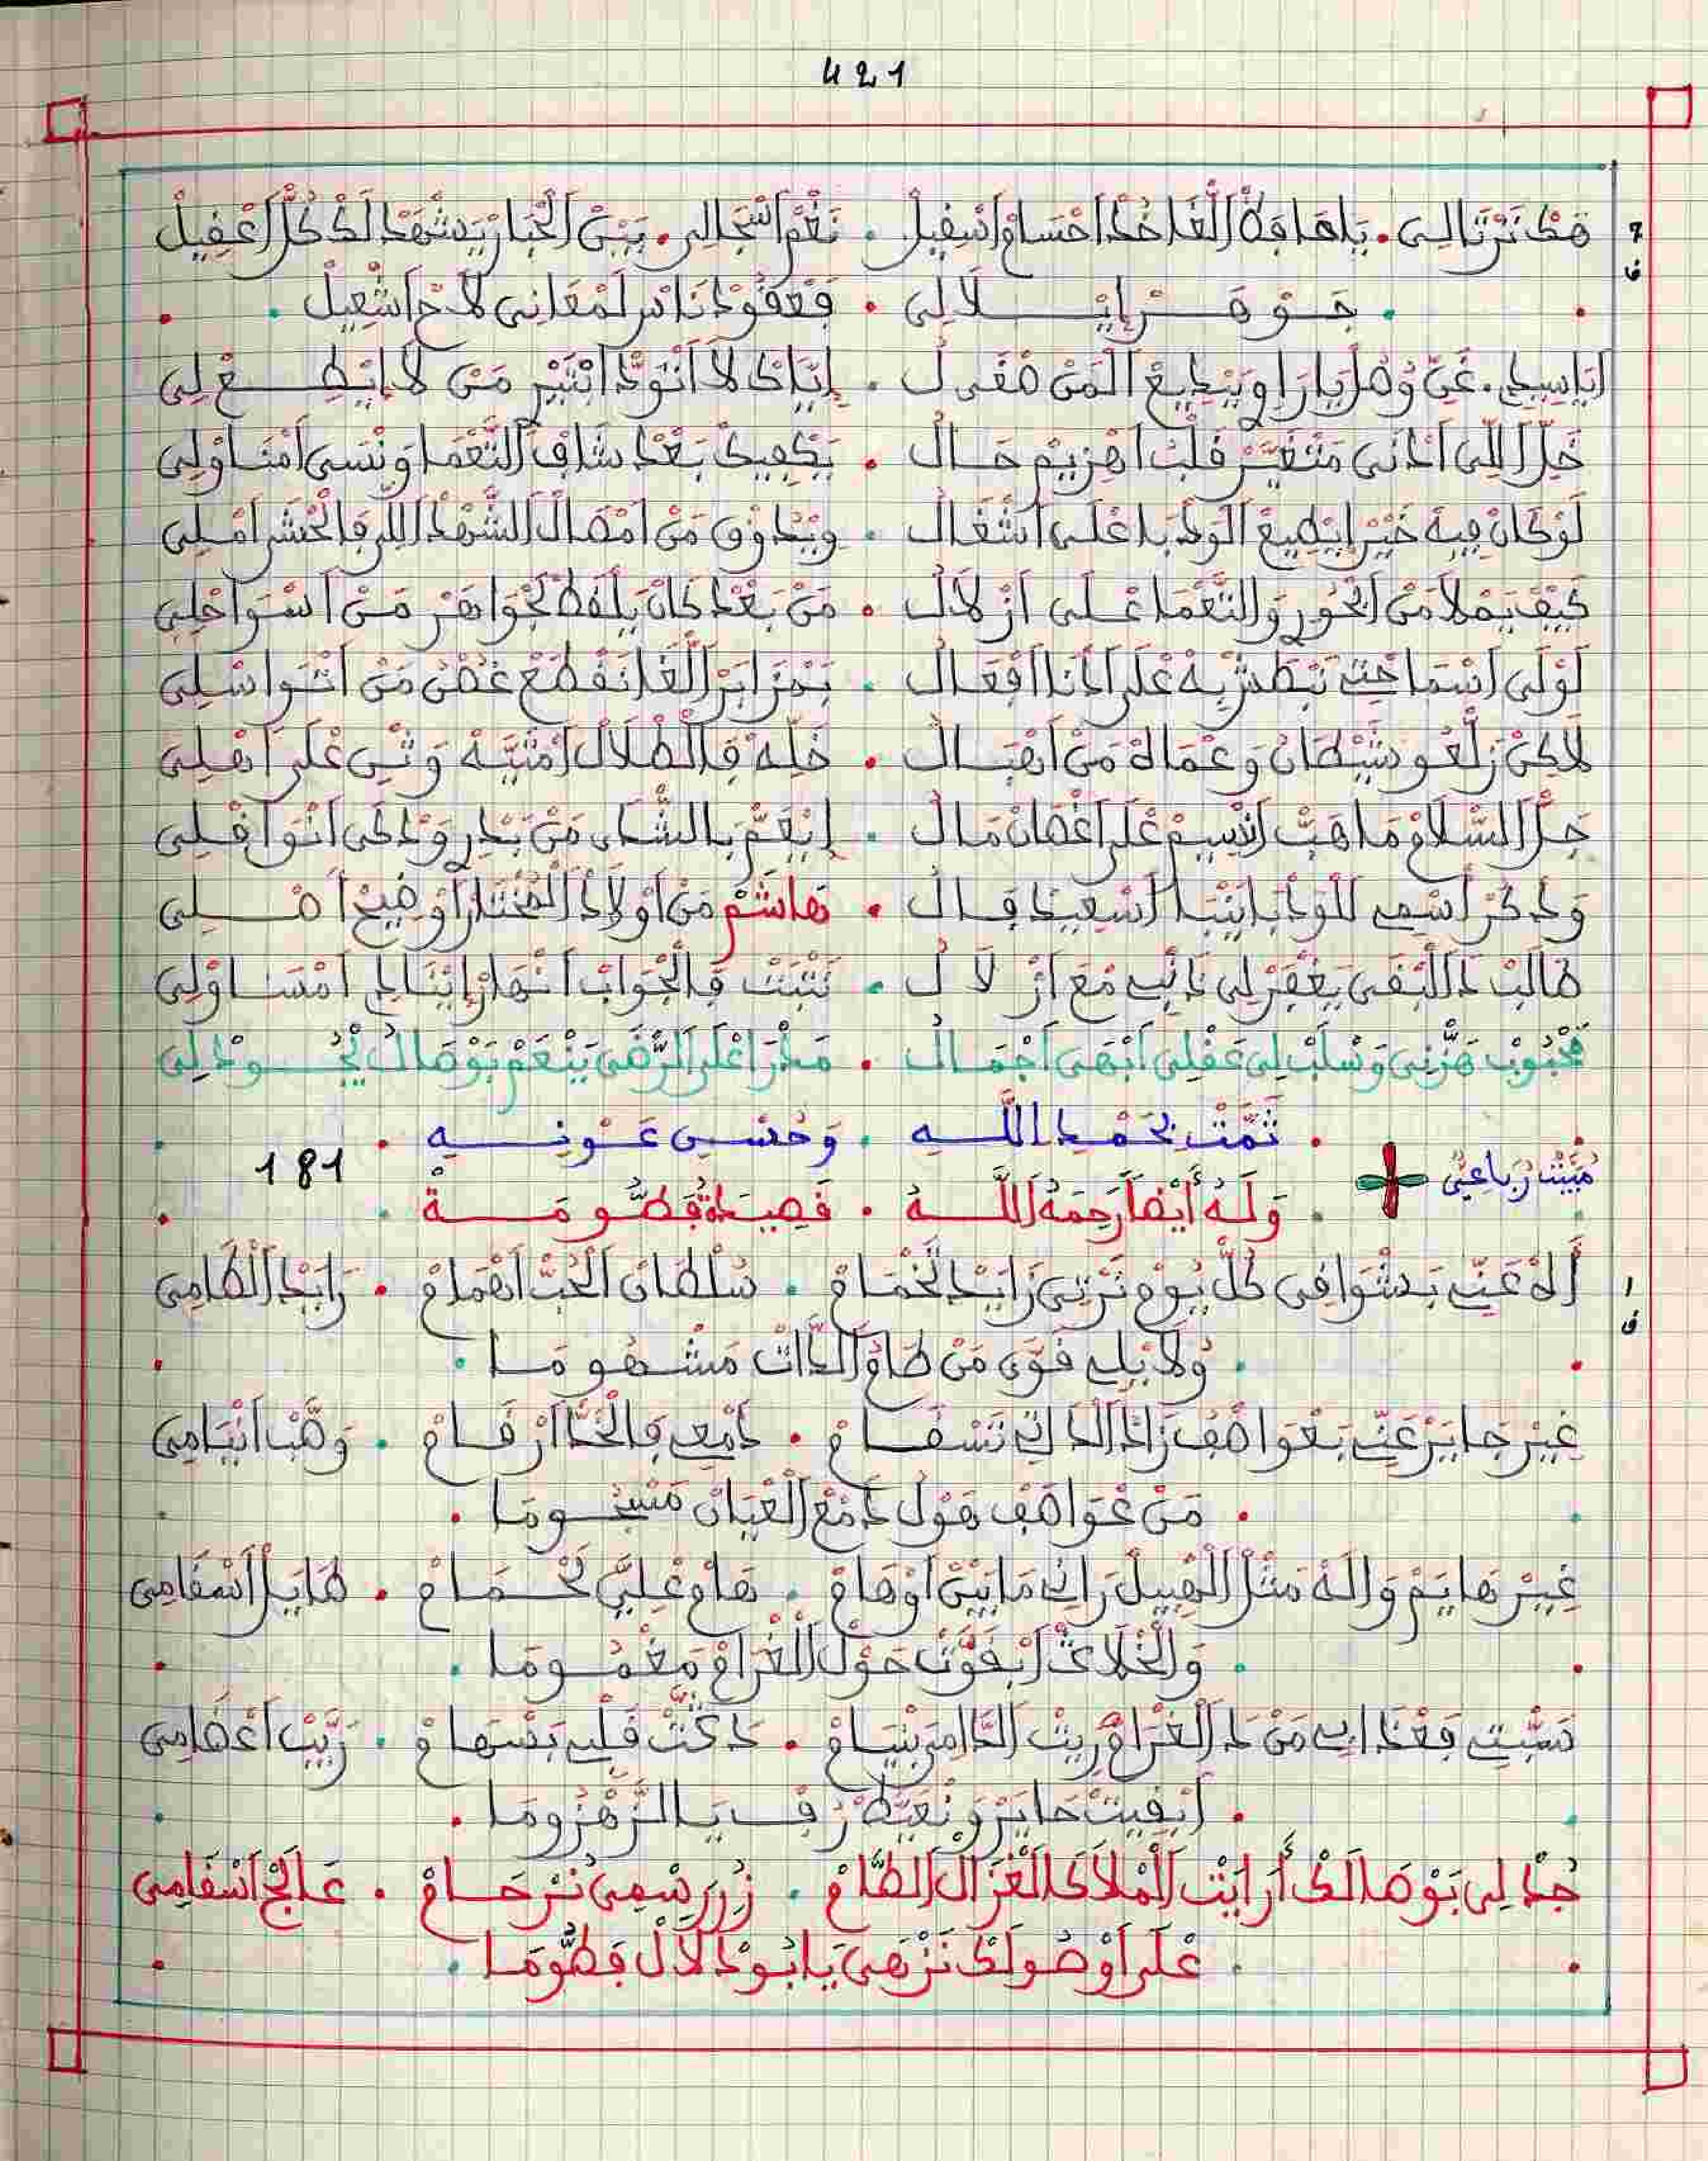 421
هَكْ تَرْتَالِي . يَا هَادِهْ اللّغَا خُذْ احْسَامْ اسْفِيلْ . نَغْمْ اسْجَالِي . بَيْنْ الْحْبَارْ يَشْهَدْ لَكْ كُلّْ اعْفِيلْ
جَوْهَرْ إيلَالِي . فَعْقُودْ نَاسْ لَمْعَانِي لاَحْ اشْعِيلْ
خَلّْ اللِّي اَدْنَى مَتْغَيَّرْ قَلْبْ اهْزِيمْ حَالُ . يَكْفِيكْ بَعْدْ شَافْ النَّعْمَا وَنْسَى امْنَاوْلِي
لَوْ كَانْ فِيهْ خَيْرْ ايْطِيعْ الْوَدْبَا عْلَى اشْغَالُ . وِيْذُوقْ مَنْ امْصَالْ الشَّهْدْ اللِّي فَالْحْشَرْ امْلِي
كِيفْ يَمْلاَ مَنْ ابْحُورِ وَالنَّعْمَا عْلَى ازْلاَلُ . مَنْ بَعْدْ كَانْ يَلْفَطْ لَجْوَاهَرْ مَنْ اسْوَاحْلِي
لَوْلَى اسْمَاحْتِي نَبْطَشْ بِهْ عْلَى ادْنَا افْعَالُ . بَمْزَابَرْ اللّغَا نَقْطَعْ غُصْنُ مَنْ انْوَاسْلِي
لاَكِنْ زَلّعُو شَيْطَانُ وَعْمَاهْ مَنْ اهْبَالُ . خَلِّهْ فِالطْلَالْ امْثِيَّهْ وَثْنِي عْلَى اهْلِي
جَلّْ السّْلَامْ مَا هَبّْ انْسِيمْ عْلَى اغْصَانْ مَالُ . ايْعَمّْ بَالشْدَا مَنْ بَدْرِي وَدْكَى انْوَافْلِي
وَدْكَرْ اسْمِي لَلْوَدْبَا ايْنْبَا اسْعِيدْ فَالُ . هَاشَمْ مَنْ اوْلَادْ الْمُخْتَارْ اوْضِيحْ اصْلِي
طَالَبْ دَا الْبْقَى يَغْفَرْ لِي دَنْبِي مْعَ ازْلَالُ . نَتْبَتْ فَالْجْوَابْ انْهَارْ ايْنَادِي امْسَاوْلِي
مَحْبُوبْ هَزّْنِي وَسْلَبْ لِي عَقْلِي ابْهَى اجْمَالُ . مَدْرَا عْلَى الرّْضَى يَنْعَمْ بَوْصَالُ يْجُودْ لِي
تَمَّتْ بِحَمْدِ اللَّهِ . وَحُسْنِ عَوْنِهِ
181
مْبَيَّتْ رُبَاعِيّْ
وَلَهُ أَيْضاً رَحِمَهُ اللَّهُ . قَصِيدَةُ فَطُّومَةْ
أَهْ عَنِّي بَشْوَاقِي كُلّْ يُومْ تَرْتِي زَايَدْ لَخْمَامْ . سُلْطَانْ الْحُبّْ اهْمَامْ . رَايَدْ الْطَامِي
وَلاَ بْلِي قَوَّى مَنْ طَامُ الدَّاتْ مَشْهُومَا
غِيرْ جَايَرْ عَنِّي بَعْوَاصْفُ زَادْ الدَاتِي تَسْقَامْ . دَمْعِي فَالْخَدّْ ارْقَامْ . وَهَّبْ انْيَامِي
مَنْ عْوَاصَفْ هَوْلُ دَمْعْ الْعْيَانْ مَسْجُومَا
غِيرْ هَايَمْ وَالَهْ مَثْلْ الْهْبِيلْ رَانِي مَابَيْنْ اوْهَامْ . هَامْ عْلِيَّ لَحْمَامْ . طَايَلْ اسْقَامِي
وَالْخْلَايَقْ ايْفَوّْتْ حَوْلْ الْغْرَامْ مَغْمُومَا
مَسّْنِي فَعْدَابِي مَنْ دَ الْغْرَامْ رِيتْ الدَّامِي بَنْيَامْ . دَكّتْ قَلْبِي بَسْهَامْ . رَيَّبْ اعْظَامِي
ابْقِيتْ حَايَرْ وَنْعَيَّطْ رْفِ يَا الزَّهْزُومَا
جُدْ لِي بَوْصَالَكْ أَرَايَتْ الْمْلاَكَ الْغْزَالْ الطَّامْ . زُرْ رَسْمِي نَرْحَامْ . عَالَجْ اسْقَامِي
عْلَى اوْصُولَكْ نَزْهَى يَا بُودْلاَلْ فَطُّومَا